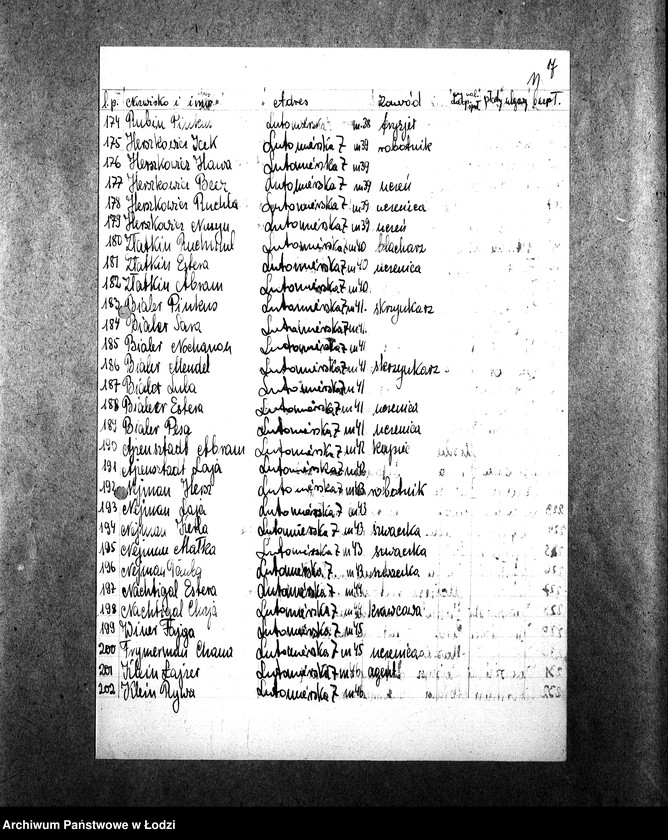 7
l.p. Nazwisko i imię Adres Zawód
174 Rubin Pinkus Lutomierska m.38 fryzjer
175 Herszkowicz Icek Lutomierska 7 m39 robotnik
176 Herszkowicz Hawa Lutomierska 7 m39
177 Herszkowicz Ber Lutomierska 7 m39 uczeń
178 Herszkowicz Ruchla Lutomierska 7 m39 uczenica
179 Herszkowicz Lutomierska 7 m39 uczeń
180 Złatkin Lutomierska 7 m40 blacharz
181 Złatkin Estera Lutomierska 7 m40 uczenica
182 Złatkin Abram Lutomierska 7 m40
183 Bialer Pinkus Lutomierska 7 m41. skrzynkarz
184 Bialer Sara Lutomierska 7 m41.
185 Bialer Lutomierska 7 m41
186 Bialer Mendel Lutomierska 7 m41 skrzynkarz
187 Bialer Luba Lutomierska 7 m41
188 Bialer Estera Lutomierska 7 m41 uczenica
189 Bialer Pesa Lutomierska 7 m41 uczenica
190 Ajzensztadt Abram Lutomierska 7 m42 kupiec
191 Ajzensztadt Łaja Lutomierska 7 m42
192 Nejman Hersz Lutomierska 7 m43 robotnik
193 Nejman Łaja Lutomierska 7 m43
194 Nejman Lutomierska 7 m43 szwaczka
195 Nejman Małka Lutomierska 7 m43 szwaczka
196 Nejman Lutomierska 7 m43 szwaczka
197 Nachtigal Estera Lutomierska 7 m44
198 Nachtigal Chaja Lutomierska 7 m44 krawcowa
199 Winer Fajga Lutomierska 7 m45
200 Frymerman Chana Lutomierska 7 m45 uczenica
201 Klein Łajzer Lutomierska 7 m46 agent
202 Klein Rywa Lutomierska 7 m46
Archiwum Państwowe w Łodzi